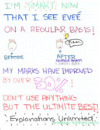 I'M SMART NOW
THAT I SEE EVEÉ
ON A REGULAR BASIS!
BEFORE
AFTER
MY MARKS HAVE IMPROVED
BY OVER
DON'T USE ANYTHING
BUT THE ULTIMATE BEST!
Explanations Unlimited